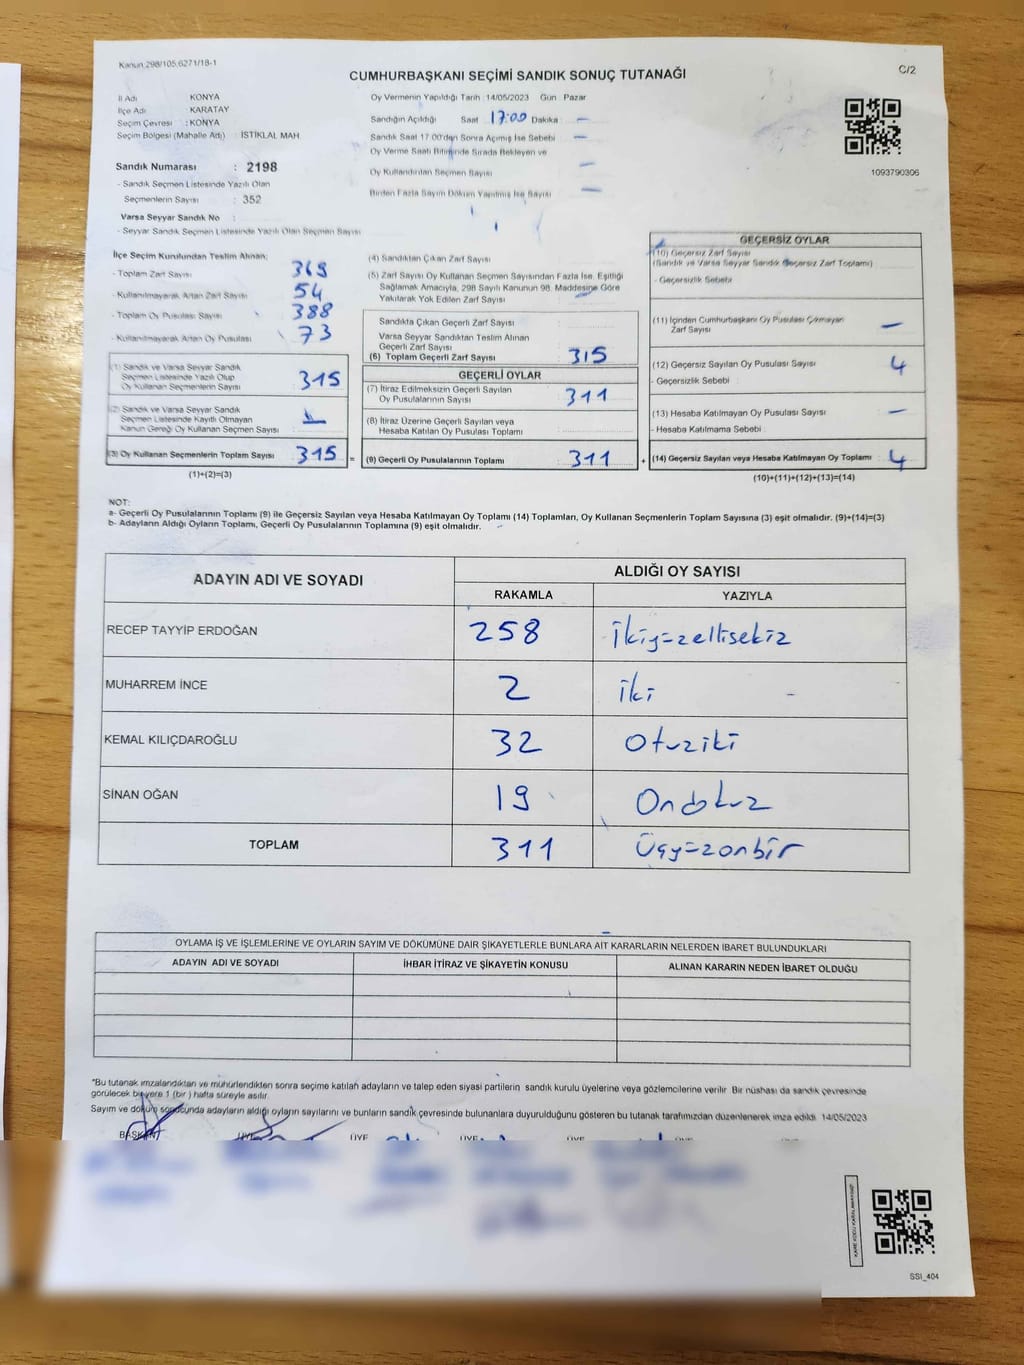 Kanun 298/105,6271/18-1
CUMHURBAŞKANI SEÇİMİ SANDIK SONUÇ TUTANAĞI
C/2
İl Adı KONYA
İlçe Adı KARATAY
Seçim Çevresi : KONYA
Seçim Bölgesi (Mahalle Adı) : İSTİKLAL MAH.
Sandık Numarası : 2198
- Sandık Seçmen Listesinde Yazılı Olan
Seçmenlerin Sayısı : 352
Varsa Seyyar Sandık No :
- Seyyar Sandık Seçmen Listesinde Yazılı Olan Seçmen Sayısı
Oy Vermenin Yapıldığı Tarih 14/05/2023 Gün Pazar
Sandığın Açıldığı Saat 17:00 Dakika : –
Sandık Saat 17.00'den Sonra Açılmış İse Sebebi –
Oy Verme Saati Bitiminde Sırada Bekleyen ve
Oy Kullandırılan Seçmen Sayısı –
Birden Fazla Sayım Döküm Yapılmış İse Sayısı –
1093790306
İlçe Seçim Kurulundan Teslim Alınan;
- Toplam Zarf Sayısı 369
- Kullanılmayarak Artan Zarf Sayısı 54
- Toplam Oy Pusulası Sayısı 388
- Kullanılmayarak Artan Oy Pusulası 73
(1) Sandık ve Varsa Seyyar Sandık
Seçmen Listesinde Yazılı Olup
Oy Kullanan Seçmenlerin Sayısı 315
(2) Sandık ve Varsa Seyyar Sandık
Seçmen Listesinde Kayıtlı Olmayan
Kanun Gereği Oy Kullanan Seçmen Sayısı :
(3) Oy Kullanan Seçmenlerin Toplam Sayısı 315 =
(1)+(2)=(3)
(4) Sandıktan Çıkan Zarf Sayısı
(5) Zarf Sayısı Oy Kullanan Seçmen Sayısından Fazla İse, Eşitliği
Sağlamak Amacıyla, 298 Sayılı Kanunun 98. Maddesine Göre
Yakılarak Yok Edilen Zarf Sayısı –
Sandıkta Çıkan Geçerli Zarf Sayısı
Varsa Seyyar Sandıktan Teslim Alınan
Geçerli Zarf Sayısı
(6) Toplam Geçerli Zarf Sayısı 315
GEÇERLİ OYLAR
(7) İtiraz Edilmeksizin Geçerli Sayılan
Oy Pusulalarının Sayısı 311
(8) İtiraz Üzerine Geçerli Sayılan veya
Hesaba Katılan Oy Pusulası Toplamı
(9) Geçerli Oy Pusulalarının Toplamı 311 +
GEÇERSİZ OYLAR
(10) Geçersiz Zarf Sayısı
(Sandık ve Varsa Seyyar Sandık Geçersiz Zarf Toplamı)
- Geçersizlik Sebebi
(11) İçinden Cumhurbaşkanı Oy Pusulası Çıkmayan
Zarf Sayısı –
(12) Geçersiz Sayılan Oy Pusulası Sayısı 4
- Geçersizlik Sebebi :
(13) Hesaba Katılmayan Oy Pusulası Sayısı –
- Hesaba Katılmama Sebebi :
(14) Geçersiz Sayılan veya Hesaba Katılmayan Oy Toplamı : 4
(10)+(11)+(12)+(13)=(14)
NOT:
a- Geçerli Oy Pusulalarının Toplamı (9) ile Geçersiz Sayılan veya Hesaba Katılmayan Oy Toplamı (14) Toplamları, Oy Kullanan Seçmenlerin Toplam Sayısına (3) eşit olmalıdır. (9)+(14)=(3)
b- Adayların Aldığı Oyların Toplamı, Geçerli Oy Pusulalarının Toplamına (9) eşit olmalıdır.
ADAYIN ADI VE SOYADI ALDIĞI OY SAYISI
RAKAMLA YAZIYLA
RECEP TAYYİP ERDOĞAN 258 ikiyüzellisekiz
MUHARREM İNCE 2 iki –
KEMAL KILIÇDAROĞLU 32 Otuziki
SİNAN OĞAN 19 Ondokuz
TOPLAM 311 Üçyüzonbir
OYLAMA İŞ VE İŞLEMLERİNE VE OYLARIN SAYIM VE DÖKÜMÜNE DAİR ŞİKAYETLERLE BUNLARA AİT KARARLARIN NELERDEN İBARET BULUNDUKLARI
ADAYIN ADI VE SOYADI İHBAR İTİRAZ VE ŞİKAYETİN KONUSU ALINAN KARARIN NEDEN İBARET OLDUĞU
"Bu tutanak imzalandıktan ve mühürlendikten sonra seçime katılan adayların ve talep eden siyasi partilerin sandık kurulu üyelerine veya gözlemcilerine verilir. Bir nüshası da sandık çevresinde
görülecek bir yere 1 (bir) hafta süreyle asılır.
Sayım ve döküm sonucunda adayların aldığı oyların sayılarını ve bunların sandık çevresinde bulunanlara duyurulduğunu gösteren bu tutanak tarafımızdan düzenlenerek imza edildi. 14/05/2023
BAŞKAN ÜYE ÜYE ÜYE ÜYE ÜYE
SSI_404